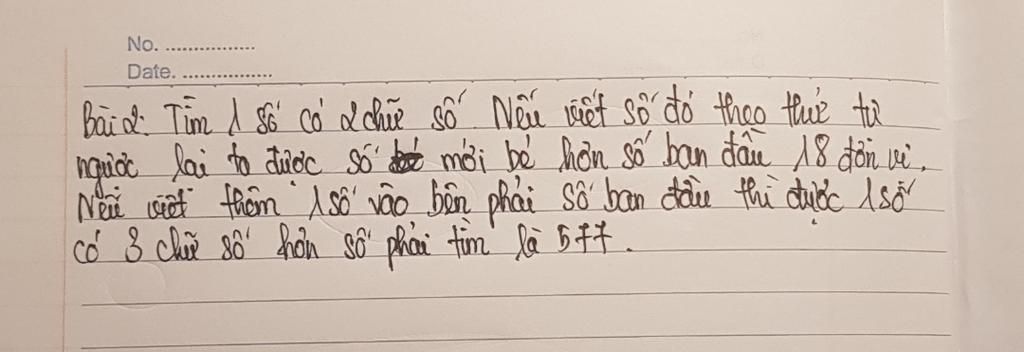 No. ................
Date. ................
Bài 2: Tìm 1 số có 2 chữ số. Nếu viết số đó theo thứ tự
ngược lại ta được số mới bé hơn số ban đầu 18 đơn vị.
Nếu viết thêm 1 số vào bên phải số ban đầu thì được 1 số
có 3 chữ số hơn số phải tìm là 577.